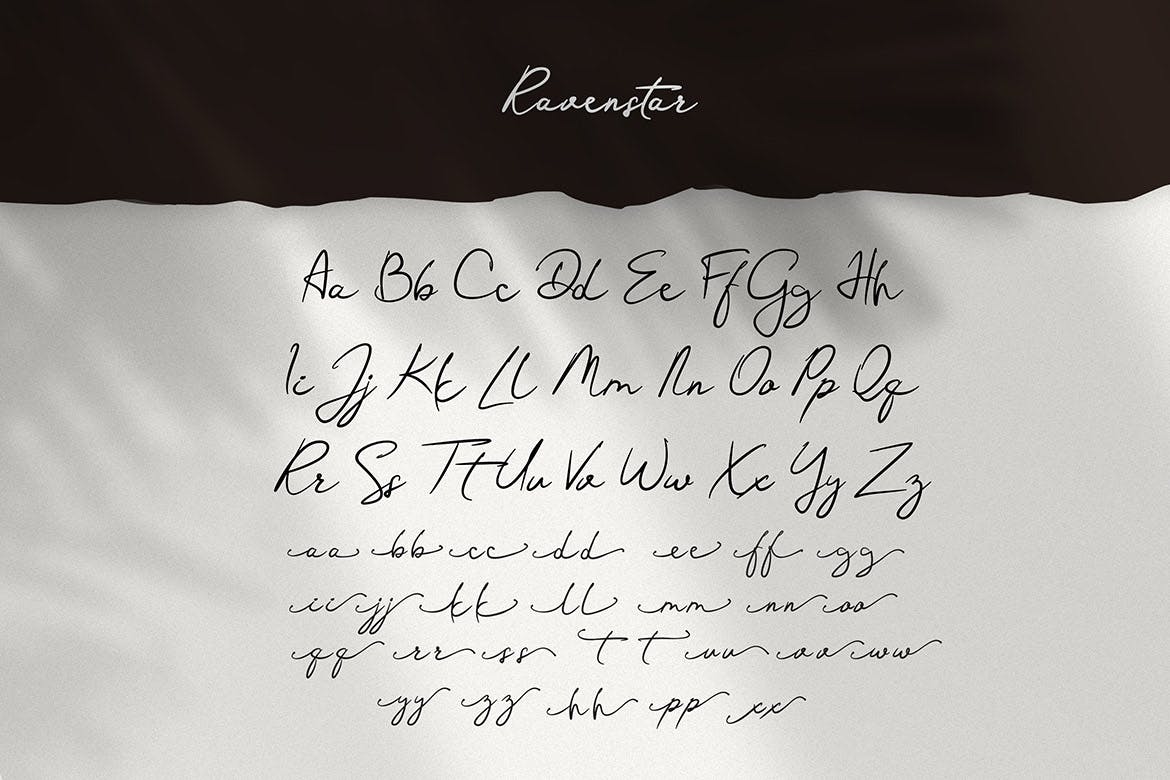 Ravenstar
Aa Bb Cc Dd Ee Ff Gg Hh
Ii Jj Kk Ll Mm Nn Oo Pp Qq
Rr Ss Tt Uu Vv Ww Xx Yy Zz
aa bb cc dd ee ff gg
ii jj kk ll mm nn oo
qq rr ss t t uu vv ww
yy zz hh pp xx